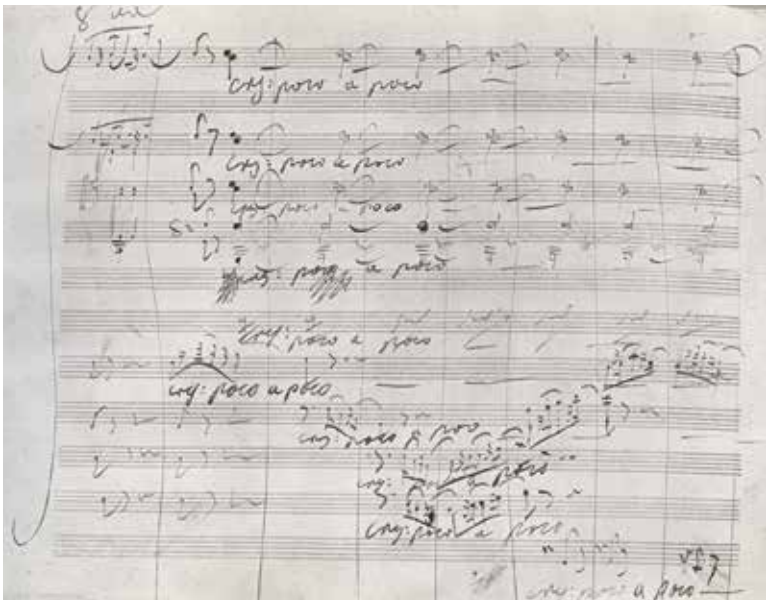 8va
cresc: poco a poco
cresc: poco a poco
poco a poco
poco a poco
cresc: poco a poco
cresc: poco a poco
cresc: poco a poco
poco
cresc: poco a poco
cresc: poco a poco